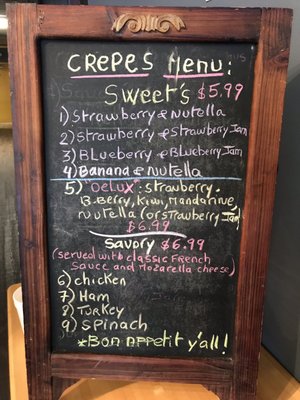 CREPES Menu:
Sweet's $5.99
1) Strawberry & Nutella
2) Strawberry & Strawberry Jam
3) Blueberry & Blueberry Jam
4) Banana & Nutella
5) "Delux": strawberry,
B.Berry, kiwi, Mandarine,
Nutella (or strawberry Jam)
$6.99
Savory $6.99
(served with classic French
Sauce and Mozarella cheese)
6) chicken
7) Ham
8) Turkey
9) Spinach
*Bon Appetit y'all!